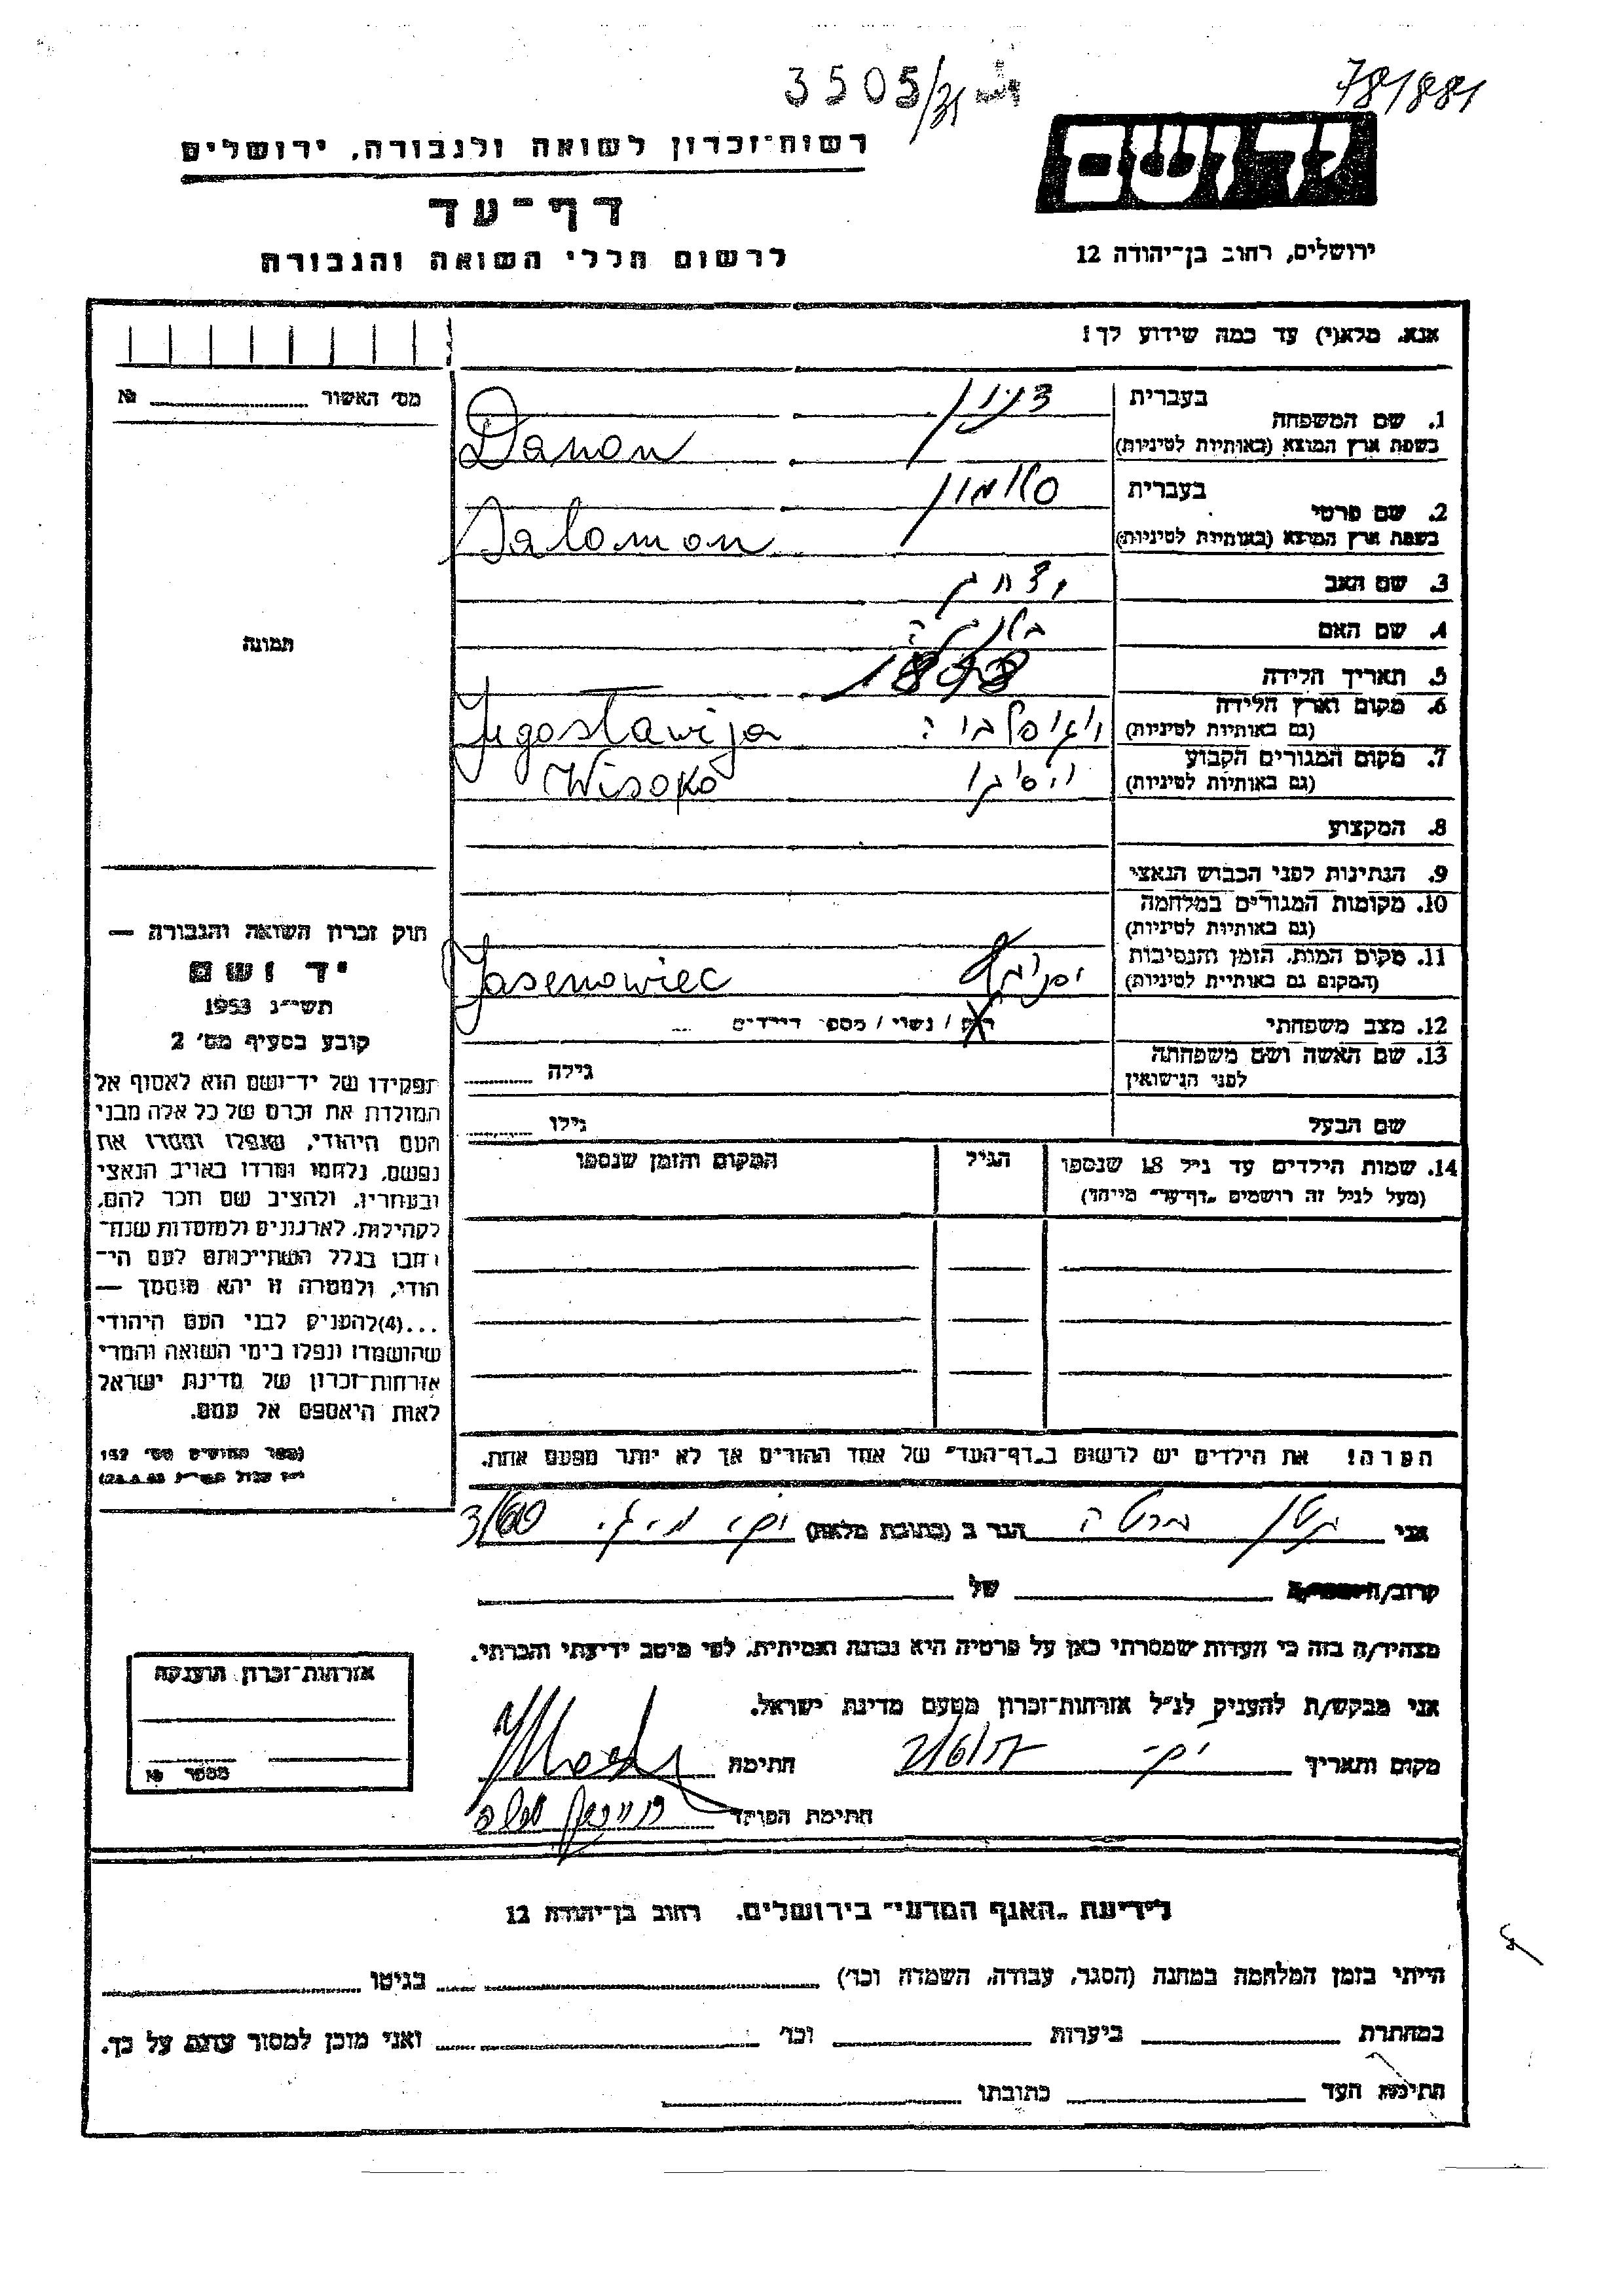 3505/31
781881
רשות־זכרון לשואה ולגבורה, ירושלים
יד ושם
דף־עד
לרשום חללי השואה והגבורה
ירושלים, רחוב בן־יהודה 12
אנא, מלא(י) עד כמה שידוע לך!
מס׳ האשור № 
1. שם המשפחה
בעברית דנון
בשפת ארץ המוצא (באותיות לטיניות) Danon
2. שם פרטי
בעברית סלומון
בשפת ארץ המוצא (באותיות לטיניות) Salomon
3. שם האב יצחק
4. שם האם
5. תאריך הלידה
6. מקום וארץ הלידה
(גם באותיות לטיניות) יוגוסלביה Jugoslawija
7. מקום המגורים הקבוע
(גם באותיות לטיניות) ויסוקו Wisoko
8. המקצוע
9. הנתינות לפני הכבוש הנאצי
10. מקומות המגורים במלחמה
(גם באותיות לטיניות)
11. מקום המות, הזמן והנסיבות
(המקום גם באותיות לטיניות) Jasenowiec
12. מצב משפחתי רוק / נשוי / מספר הילדים
13. שם האשה ושם משפחתה
לפני הנישואין גילה
שם הבעל גילו
14. שמות הילדים עד גיל 18 שנספו
(מעל לגיל זה רושמים „דף־עד״ מיוחד)
הגיל
המקום והזמן שנספו
הערה! את הילדים יש לרשום ב„דף־העד״ של אחד ההורים אך לא יותר מפעם אחת.
תמונה
חוק זכרון השואה והגבורה —
יד ושם
תשי״ג 1953
קובע בסעיף מס׳ 2
תפקידו של יד־ושם הוא לאסוף אל
המולדת את זכרם של כל אלה מבני
העם היהודי, שנפלו ומסרו את
נפשם, נלחמו ומרדו באויב הנאצי
ובעוזריו, ולהציב שם וזכר להם,
לקהילות, לארגונים ולמוסדות שנח־
רבו בגלל השתייכותם לעם הי־
הודי, ולמטרה זו יהא מוסמך —
...(4) להעניק לבני העם היהודי
שהושמדו ונפלו בימי השואה והמרי
אזרחות־זכרון של מדינת ישראל
לאות היאספם אל עמם.
(ספר החוקים מס׳ 132
אני הגר ב (כתובת מלאה) 3/60
קרוב/ה של
מצהיר/ה בזה כי העדות שמסרתי כאן על פרטיה היא נכונה ואמיתית, לפי מיטב ידיעתי והכרתי.
אני מבקש/ת להעניק לנ״ל אזרחות־זכרון מטעם מדינת ישראל.
מקום ותאריך חתימה
חתימת הפוקד
אזרחות־זכרון הוענקה
מספר №
לידיעת „האגף המדעי״ בירושלים, רחוב בן־יהודה 12
הייתי בזמן המלחמה במחנה (הסגר, עבודה, השמדה וכו׳) בגיטו
במחתרת ביערות וכו׳ ואני מוכן למסור עדות על כך.
חתימת העד כתובתו